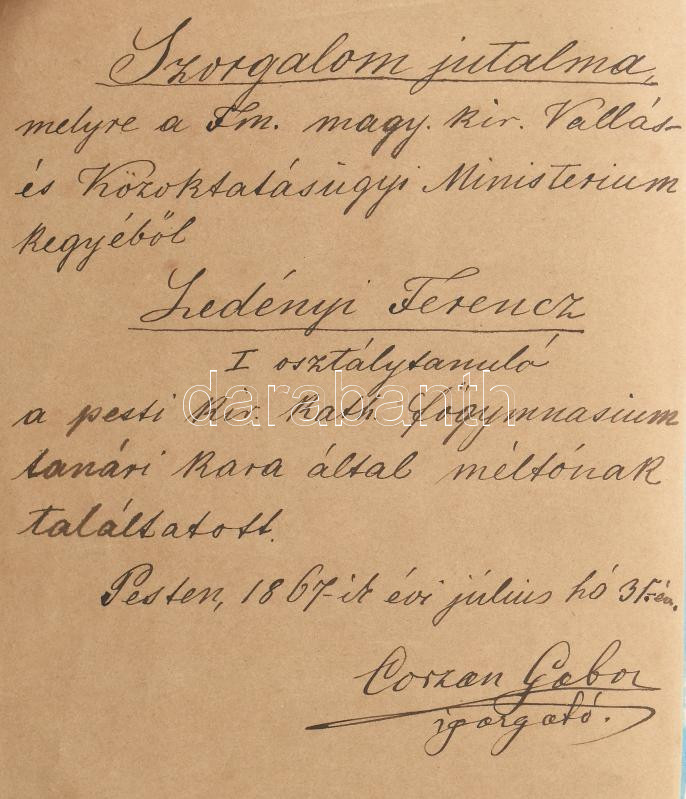 Szorgalom jutalma,
melyre a Fm. magy. kir. Vallás-
és Közoktatásügyi Ministerium
kegyéből
Ledényi Ferencz
I osztálytanuló
darabanth
a pesti kir. kath. főgymnasium
tanári kara által méltónak
találtatott.
Pesten, 1867-ik évi július hó 31-én.
Corzan Gabor
igazgató.